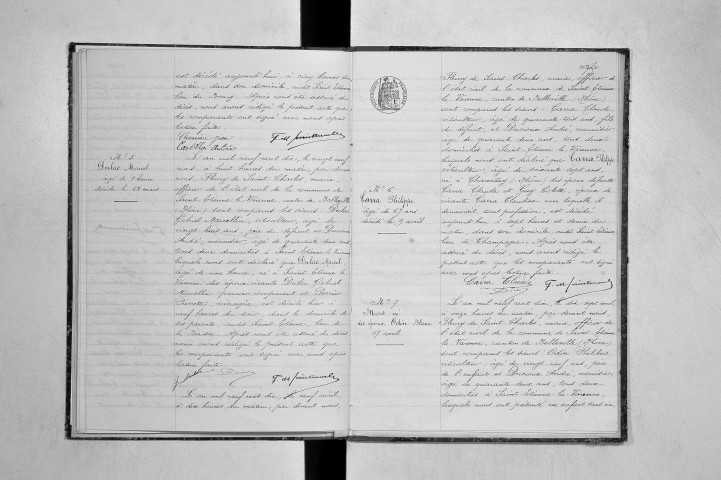 est décédé aujourd'hui, à cinq heures du
matin, dans son domicile, audit Saint Etienne,
lieu du Bourg. Après nous être assuré du
décès, nous avons rédigé le présent acte que
les comparants ont signé avec nous après
lecture faite.
N° 5
Dulac Marcel
âgé de 1 heure
décédé le 28 mars
L'an mil neuf cent dix, le vingt neuf
mars, à huit heures du matin, par devant
nous, Fleury de Saint Charles, maire,
officier de l'état civil de la commune de
Saint Etienne la Varenne, canton de Belleville
(Rhône) sont comparus les sieurs: Dulac
Marcellin, viticulteur, âgé de
vingt huit ans, père du défunt et Ducroux
André, menuisier, âgé de quarante deux ans
tous deux domiciliés à Saint Etienne la Varenne
lesquels nous ont déclaré que Dulac Marcel,
âgé de une heure, né à Saint Etienne la
Varenne, des époux vivants Dulac
Marcellin, premier comparant et
ménagère, est décédé hier à
neuf heures du soir, dans le domicile de
ses parents audit Saint Etienne, lieu de
Après nous être assuré du décès
nous avons rédigé le présent acte que
les comparants ont signé avec nous après
lecture faite.
L'an mil neuf cent dix, le neuf avril
à dix heures du matin, par devant nous,
Fleury de Saint Charles, maire, officier de
l'état civil de la commune de Saint Etienne
la Varenne, canton de Belleville (Rhône)
sont comparus les sieurs: Carra Claude,
viticulteur, âgé de quarante trois ans, fils
du défunt, et Ducroux André, menuisier
âgé de quarante deux ans, tous deux
domiciliés à Saint Etienne la Varenne,
lesquels nous ont déclaré que Carra Philippe
viticulteur, âgé de soixante sept ans,
né à (Rhône) des époux défunts
Carra Claude et Guy époux de
vivante Carra Claudine avec laquelle il
demeurait sans profession, est décédé
aujourd'hui à sept heures et demie du
matin, dans son domicile audit Saint Etienne
lieu de Champagne. Après nous être
assuré du décès, nous avons rédigé le
présent acte que les comparants ont signé
avec nous après lecture faite.
Carra Claude
N° 6
Carra Philippe
âgé de 67 ans
décédé le 9 avril
N° 7
Mort né
des époux Odin
17 avril
L'an mil neuf cent dix, le dix sept avril
à onze heures du matin, par devant nous,
Fleury de Saint Charles, maire, officier de
l'état civil de la commune de Saint Etienne
la Varenne, canton de Belleville (Rhône)
sont comparus les sieurs: Odin
viticulteur, âgé de vingt neuf ans, père
de l'enfant et Ducroux André, menuisier,
âgé de quarante deux ans, tous deux
domiciliés à Saint Etienne la Varenne,
lesquels nous ont présenté un enfant sans vie